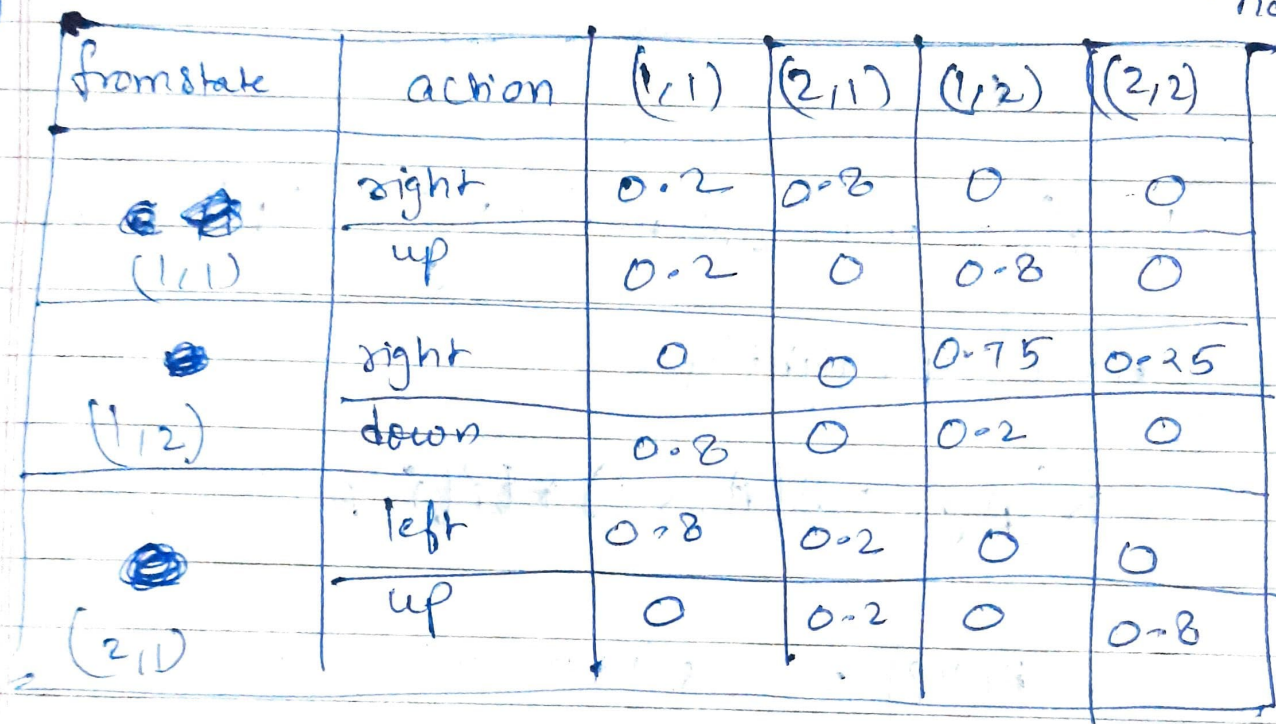 fromstate action (1,1) (2,1) (1,2) (2,2)
right 0.2 0.8 0 0
(1,1)
up 0.2 0 0.8 0
right 0 0 0.75 0.25
(1,2)
down 0.8 0 0.2 0
left 0.8 0.2 0 0
up 0 0.2 0 0.8
(2,1)